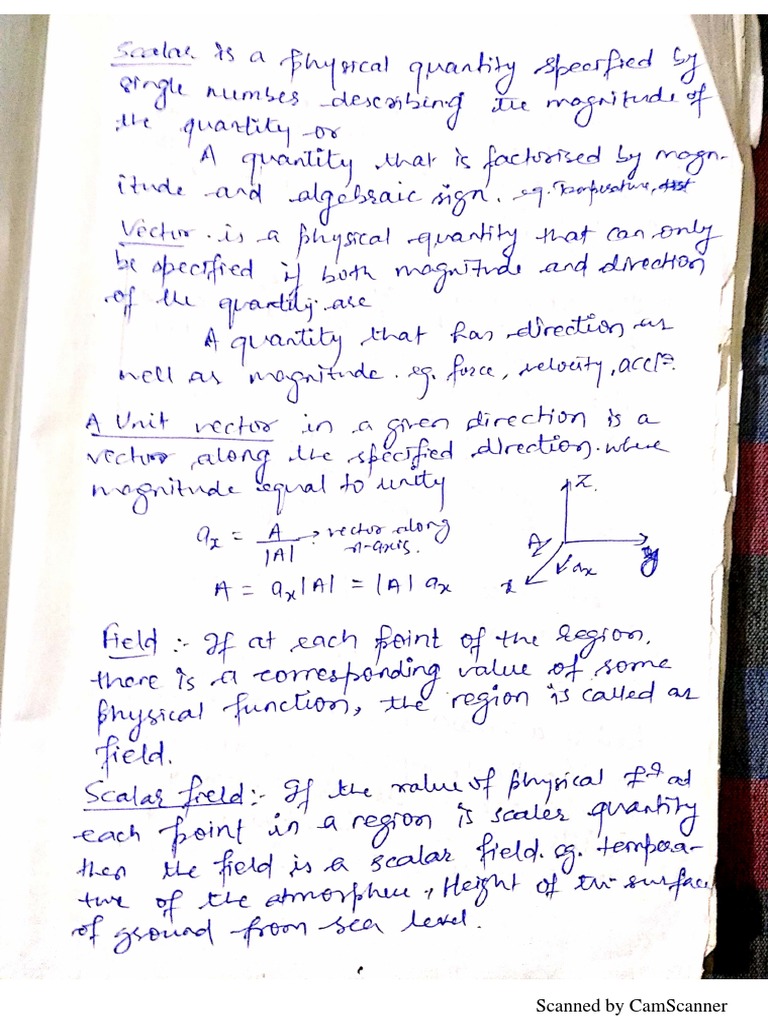 Scalar is a physical quantity specified by
single number describing the magnitude of
the quantity or
A quantity that is factorised by magn-
itude and algebraic sign. eg. Temperature, dist
Vector. is a physical quantity that can only
be specified if both magnitude and direction
of the quantity. are
A quantity that has direction as
well as magnitude. eg. force, velocity, accln.
A Unit vector in a given direction is a
vector along the specified direction. whose
magnitude equal to unity
ax = A/|A| → vector along x-axis.
A = ax|A| = |A| ax
Z
A
y
ax
x
Field :- If at each point of the region,
there is a corresponding value of some
physical function, the region is called as
field.
Scalar field :- If the value of physical fn at
each point in a region is scaler quantity
then the field is a scalar field. eg. tempera-
ture of the atmosphere, Height of the surface
of ground from sea level.
Scanned by CamScanner